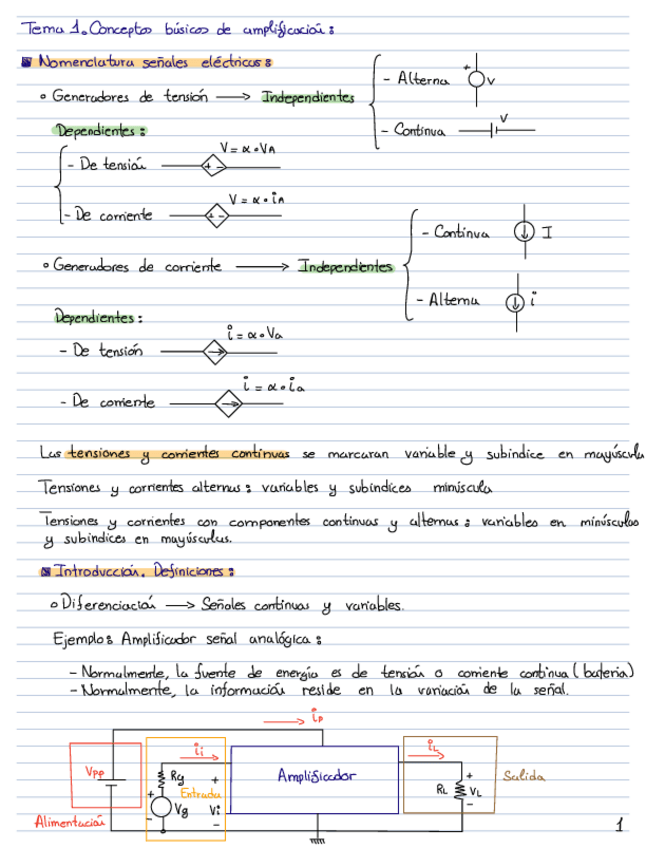 Tema 1. Conceptos básicos de amplificación:
Nomenclatura señales eléctricas:
Generadores de tensión → Independientes
- Alterna
+
v
- Continua
V
Dependientes:
- De tensión
V = α · VA
+ -
- De corriente
V = α · iA
+ -
Generadores de corriente → Independientes
- Continua
I
- Alterna
i
Dependientes:
- De tensión
i = α · Va
- De corriente
i = α · ia
Las tensiones y corrientes continuas se marcaran variable y subindice en mayúscula
Tensiones y corrientes alternas: variables y subíndices miníscula
Tensiones y corrientes con componentes continuas y alternas: variables en minúsculas
y subindices en mayúsculas.
Introducción. Definiciones:
Diferenciación → Señales continuas y variables.
Ejemplo: Amplificador señal analógica:
- Normalmente, la fuente de energía es de tensión o corriente continua (bateria)
- Normalmente, la información reside en la variación de la señal.
ip
ii
iL
Vpp
Rg
+
Entrada
Amplificador
Salida
+
RL
VL
-
+
Vg
-
Vi
-
Alimentación
1